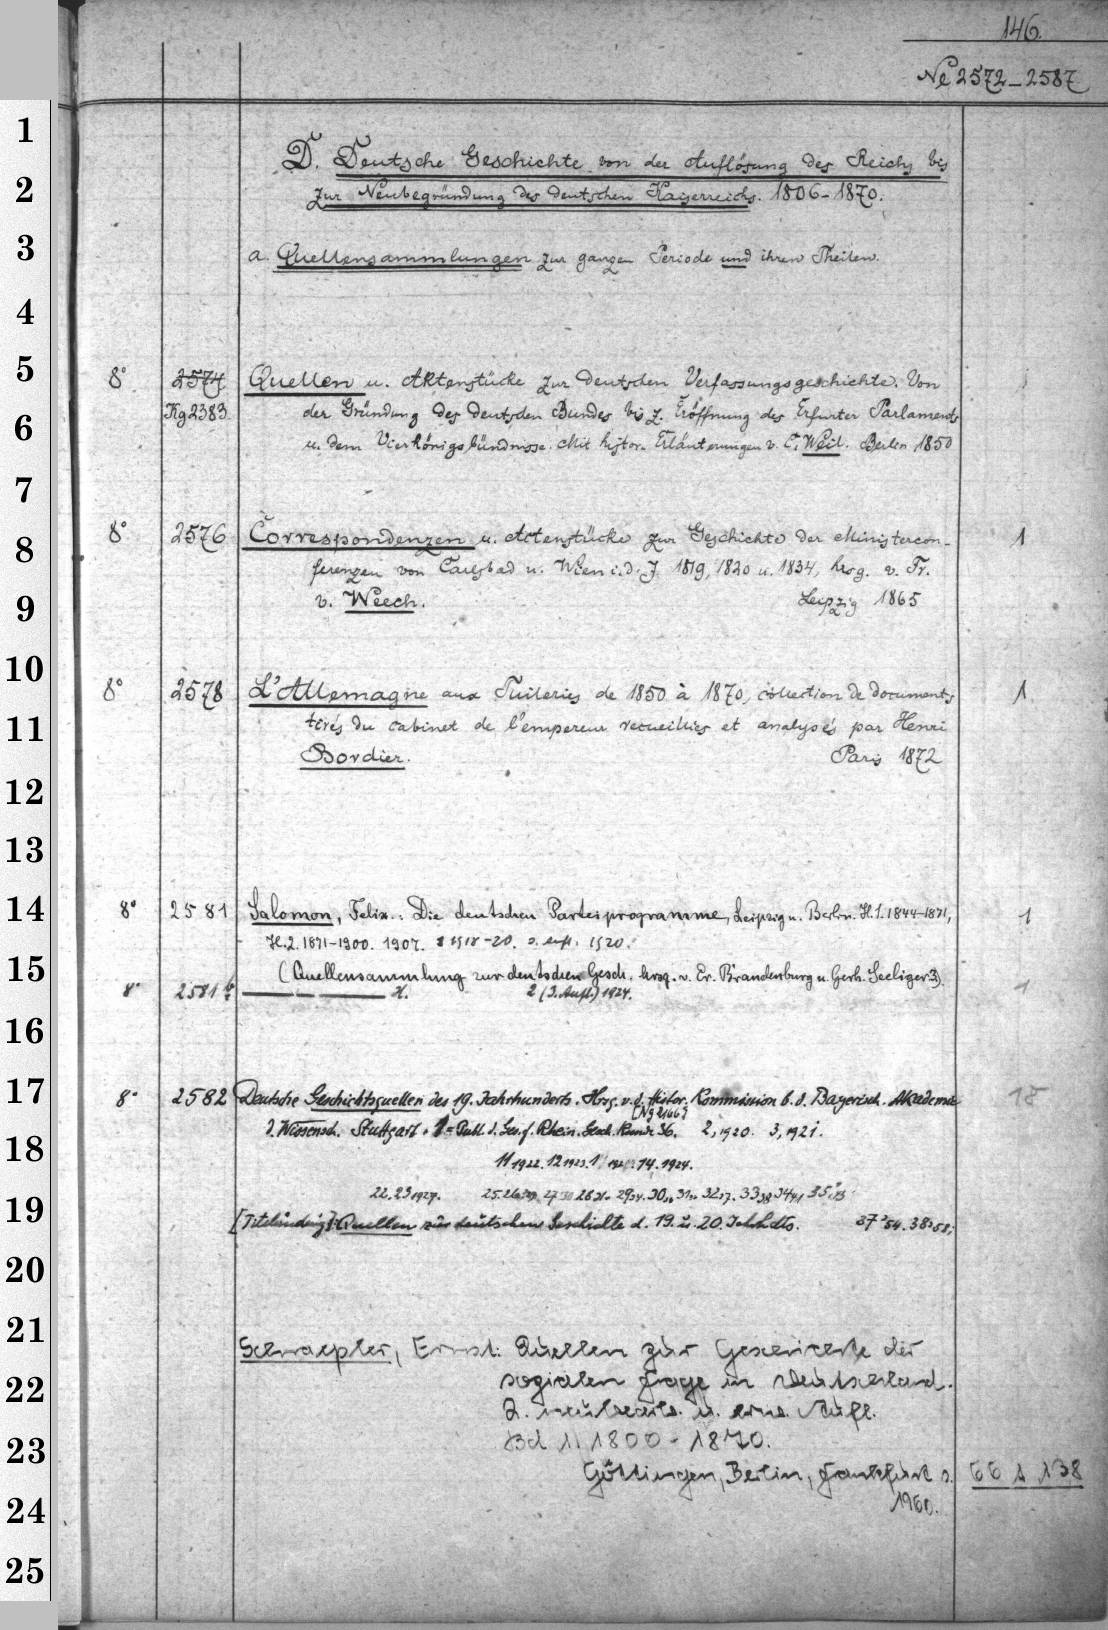 146.
Ne 2572-2587
1
D. Deutsche Geschichte von der Auflösung des Reichs bis
2
zur Neubegründung des deutschen Kaiserreichs. 1806-1870.
3
a. Quellensammlungen zur ganzen Periode und ihren Theilen.
4
5
8° 2574 Quellen u. Aktenstücke zur deutschen Verfassungsgeschichte. Von
Kg2383 der Gründung des deutschen Bundes bis z. Eröffnung des Erfurter Parlaments
6
u. dem Vierkönigsbündnisse. Mit histor. Erläuterungen v. C. Weil. Berlin 1850
7
8° 2576 Correspondenzen u. Actenstücke zur Geschichte der Ministercon- 1
8
ferenzen von Carlsbad u. Wien i. d. J 1819, 1820 u. 1834, hrsg. v. Fr.
9
v. Weech. Leipzig 1865
10
8° 2578 L'Allemagne aux Tuileries de 1850 à 1870, collection de documents 1
11
tirés du cabinet de l'empereur recueillies et analysés par Henri
Bordier. Paris 1872
12
13
14
8° 2581 Salomon, Felix.: Die deutschen Parteiprogramme, Leipzig u. Berlin. H.1. 1844-1871, 1
H.2. 1871-1900. 1907. 1918-20. 2. aufl. 1920.
15
(Quellensammlung zur deutschen Gesch. hrsg. v. Er. Brandenburg u. Gerh. Seeliger 3).
8° 2581 H. 2 (3. Aufl.) 1924. 1
16
17
8° 2582 Deutsche Geschichtsquellen des 19. Jahrhunderts. Hrsg. v. d. Histor. Kommission b. d. Bayerisch. Akademie 18
[Ng 2166]
d. Wissensch. Stuttgart. 1 = Publ. d. Ges. f. Rhein. Gesch. Kunde 36. 2, 1920. 3, 1921.
18
11 1922. 12 1923. 14. 1924.
22. 23 1927.
19
[Titeländrg]: Quellen zur deutschen Geschichte d. 19. u. 20. Jahrhdts. 37 '54. 38 '58;
20
21
Schraepler, Ernst: Quellen zur Geschichte der
22
sozialen Frage in Deutschland.
2. neubearb. u. erw. Aufl.
23
Bd 1: 1800-1870.
Göttingen, Berlin, Frankfurt 66 A 138
24
1960.
25